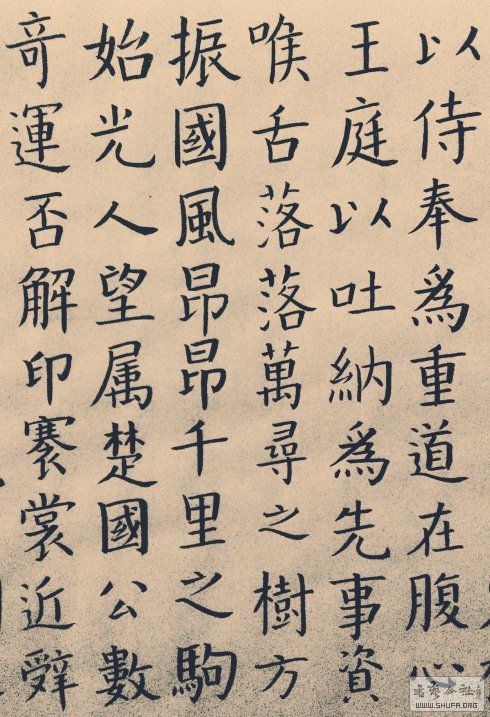 以侍奉爲重道在腹心
王庭以吐納爲先事資
喉舌落落萬尋之樹方
振國風昂昂千里之駒
始光人望属楚國公數
奇運否解印褰裳近辤
WWW.SHUFA.ORG